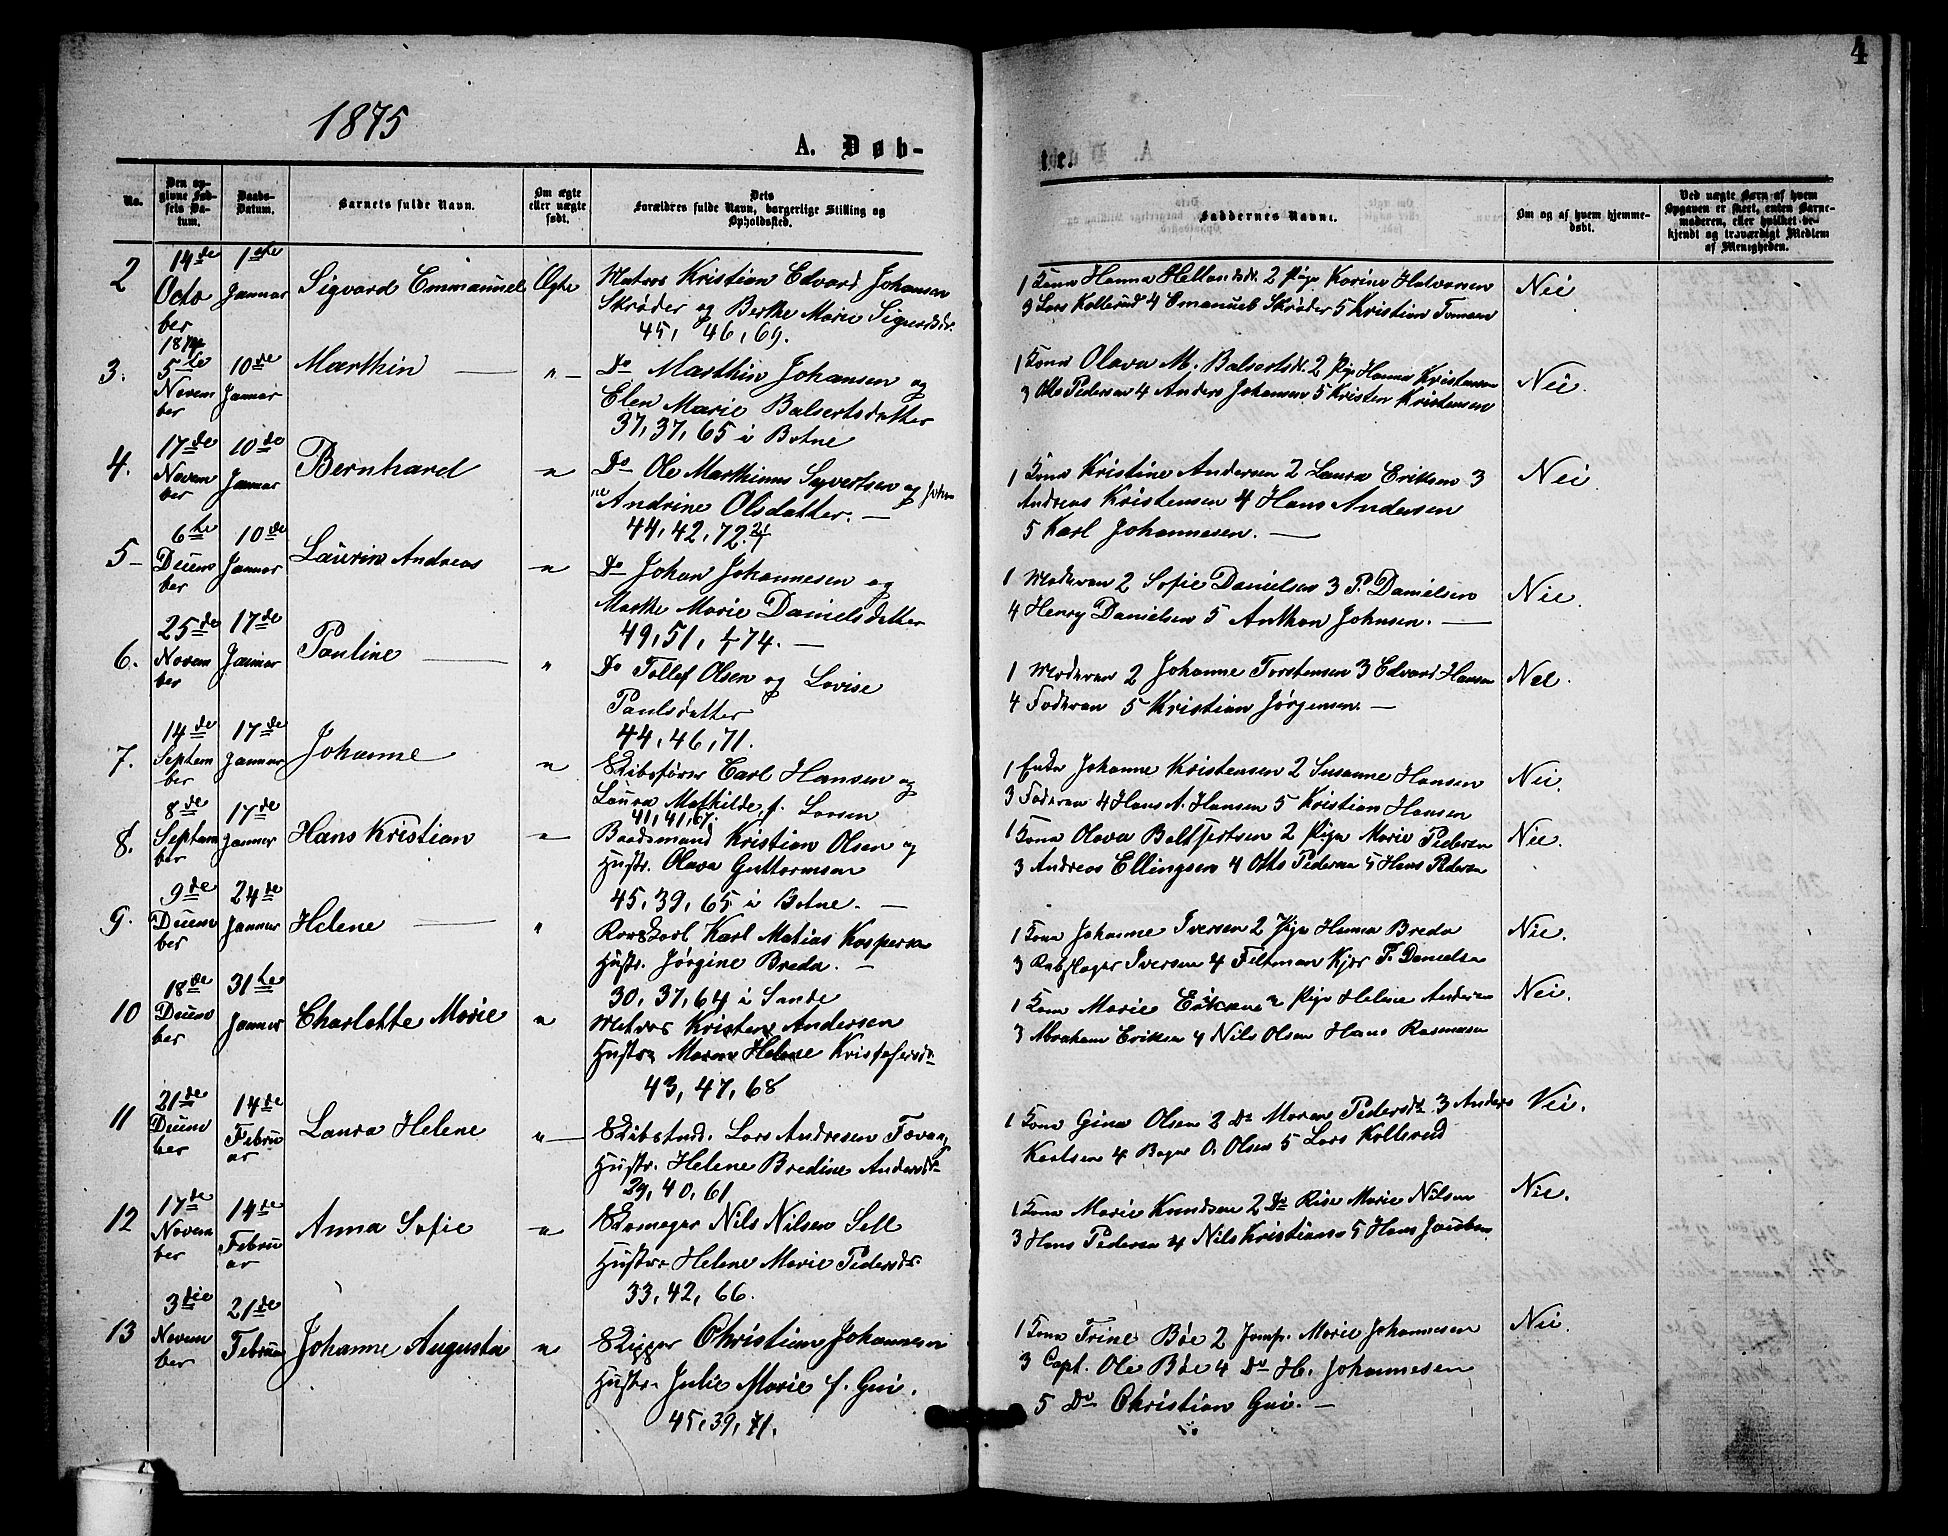 4
1875
A. Døb-
te.
No.
Den op-
givne Fød-
sels Da-
tum.
Daabs-
Datum.
Barnets fulde Navn.
Om ægte
eller uægte
født.
Dets
Forældres fulde Navn, borgerlige Stilling og
Opholdssted.
Faddernes Navne.
Om og af hvem hjemme-
døbt.
Ved uægte Børn af hvem
Opgaven er skeet, enten Barne-
moderen, eller hvilket be-
kjendt og troværdigt Medlem
af Menigheden.
2
14de
Octo
ber
1874
1ste
Januar
Sigvard Emmanuel
Ægte
Matros Kristian Edvard Johansen
Skrøder og Berthe Marie Sigurdsdr.
45, 46, 69.
1 Kona Hanna Hellandsdr. 2 Pige Karine Halvorsen
3 Lars Kollerud 4 Emanuel Skrøder 5 Kristian Tomsen
Nei
3.
5te
Novem
ber
10de
Januar
Marthin —
" —
Do Marthin Johansen og
Elen Marie Balsertsdatter
37, 37, 65 i Botne
1 Kona Olava M. Balsertsdr. 2 Pige Hanna Kristensen
3 Otto Pedersen 4 Anders Johansen 5 Kristen Kristensen
Nei.
4.
17de
Novem
ber
10de
Januar
Bernhard
"
Do Ole Marthinus Syvertsen og Johan
ne Andrine Olsdatter. —
44, 42, 72.
1 Kona Kristine Andersen 2 Laura Eriksen 3
Andreas Kristensen 4 Hans Andersen
5 Karl Johannesen. —
Nei.
5 —
6te
Decem
ber
10de
Januar
Laurin Andreas
"
Do Johan Johannesen og
Marthe Marie Danielsdatter
49, 51, 74. —
1 Moderen 2 Sofie Danielsen 3 P. Danielsen
4 Henry Danielsen 5 Anthon Johnsen. —
Nei.
6.
25de
Novem
ber
17de
Januar
Pauline —
"
Do Tollef Olsen og Lovise
Paulsdatter
44, 46, 71.
1 Moderen 2 Johanne Torstensen 3 Edvard Hansen
4 Faderen 5 Kristian Jørgensen. —
Nei.
7.
14de
Septem
ber
17de
Januar
Johanne
"
Skibsfører Carl Hansen og
Laura Mathilde f. Larsen
41, 41, 67.
1 Enke Johanne Kristensen 2 Susanne Hansen
3 Faderen 4 Hans A. Hansen 5 Kristian Hansen
Nei.
8.
8de
Septem
ber
17de
Januar
Hans Kristian
"
Baadsmand Kristian Olsen og
Hustr. Olava Guttormsen
45, 39, 65 i Botne. —
1 Kona Olava Baltsertsen 2 Pige Marie Pedersen
3 Andreas Ellingsen 4 Otto Pedersen 5 Hans Pedersen
Nei.
9.
9de
Decem
ber
24de
Januar
Helene —
"
Karl Matias Kaspersen
Hustr. Jørgine Breda. —
30, 37, 64 i Sande
1 Kona Johanne Iversen 2 Pige Hanna Breda
3 Rebslager Iversen 4 Feltman Kjær P. Danielsen
Nei.
10
18de
Decem
ber
31te
Januar
Charlotte Marie
"
Matros Kristen Andersen
Hustru Maren Helene Kristofersdr.
43, 47, 68
1 Kona Marie Eriksen 2 Pige Helene Andersen
3 Abraham Eriksen 4 Nils Olsen Hans Rasmusen
Nei.
11
21de
Decem
ber
14de
Febru
ar
Laura Helene
" —
Skibstmd. Lars Andresen
Hustr. Helene Bredine Andersdr.
29, 40, 61
1 Kona Gina Olsen 2 Do Maren Pedersdr. 3 Anders
Karlsen 4 Bager O. Olsen 5 Lars Kollerud
Nei.
12
17de
Novem
ber
14de
Febru
ar
Anna Sofie
"
Skomager Nils Nilsen Sell
Hustru Helene Marie Pedersdr.
33, 42, 66.
1 Kona Marie Knudsen 2 Do Rise Marie Nilsen
3 Hans Pedersen 4 Nils Kristiansen 5 Hans Jacobsen
Nei.
13
3die
Novem
ber
21de
Februar
Johanne Augusta
"
Skipper Christian Johannesen
Hustr. Julie Marie f. Gui.
45, 39, 71.
1 Kona Trine Bøe 2 Jomf. Marie Johannesen
3 Capt. Ole Bøe 4 Do H. Johannesen
5 Do Christian Gui. —
Nei.